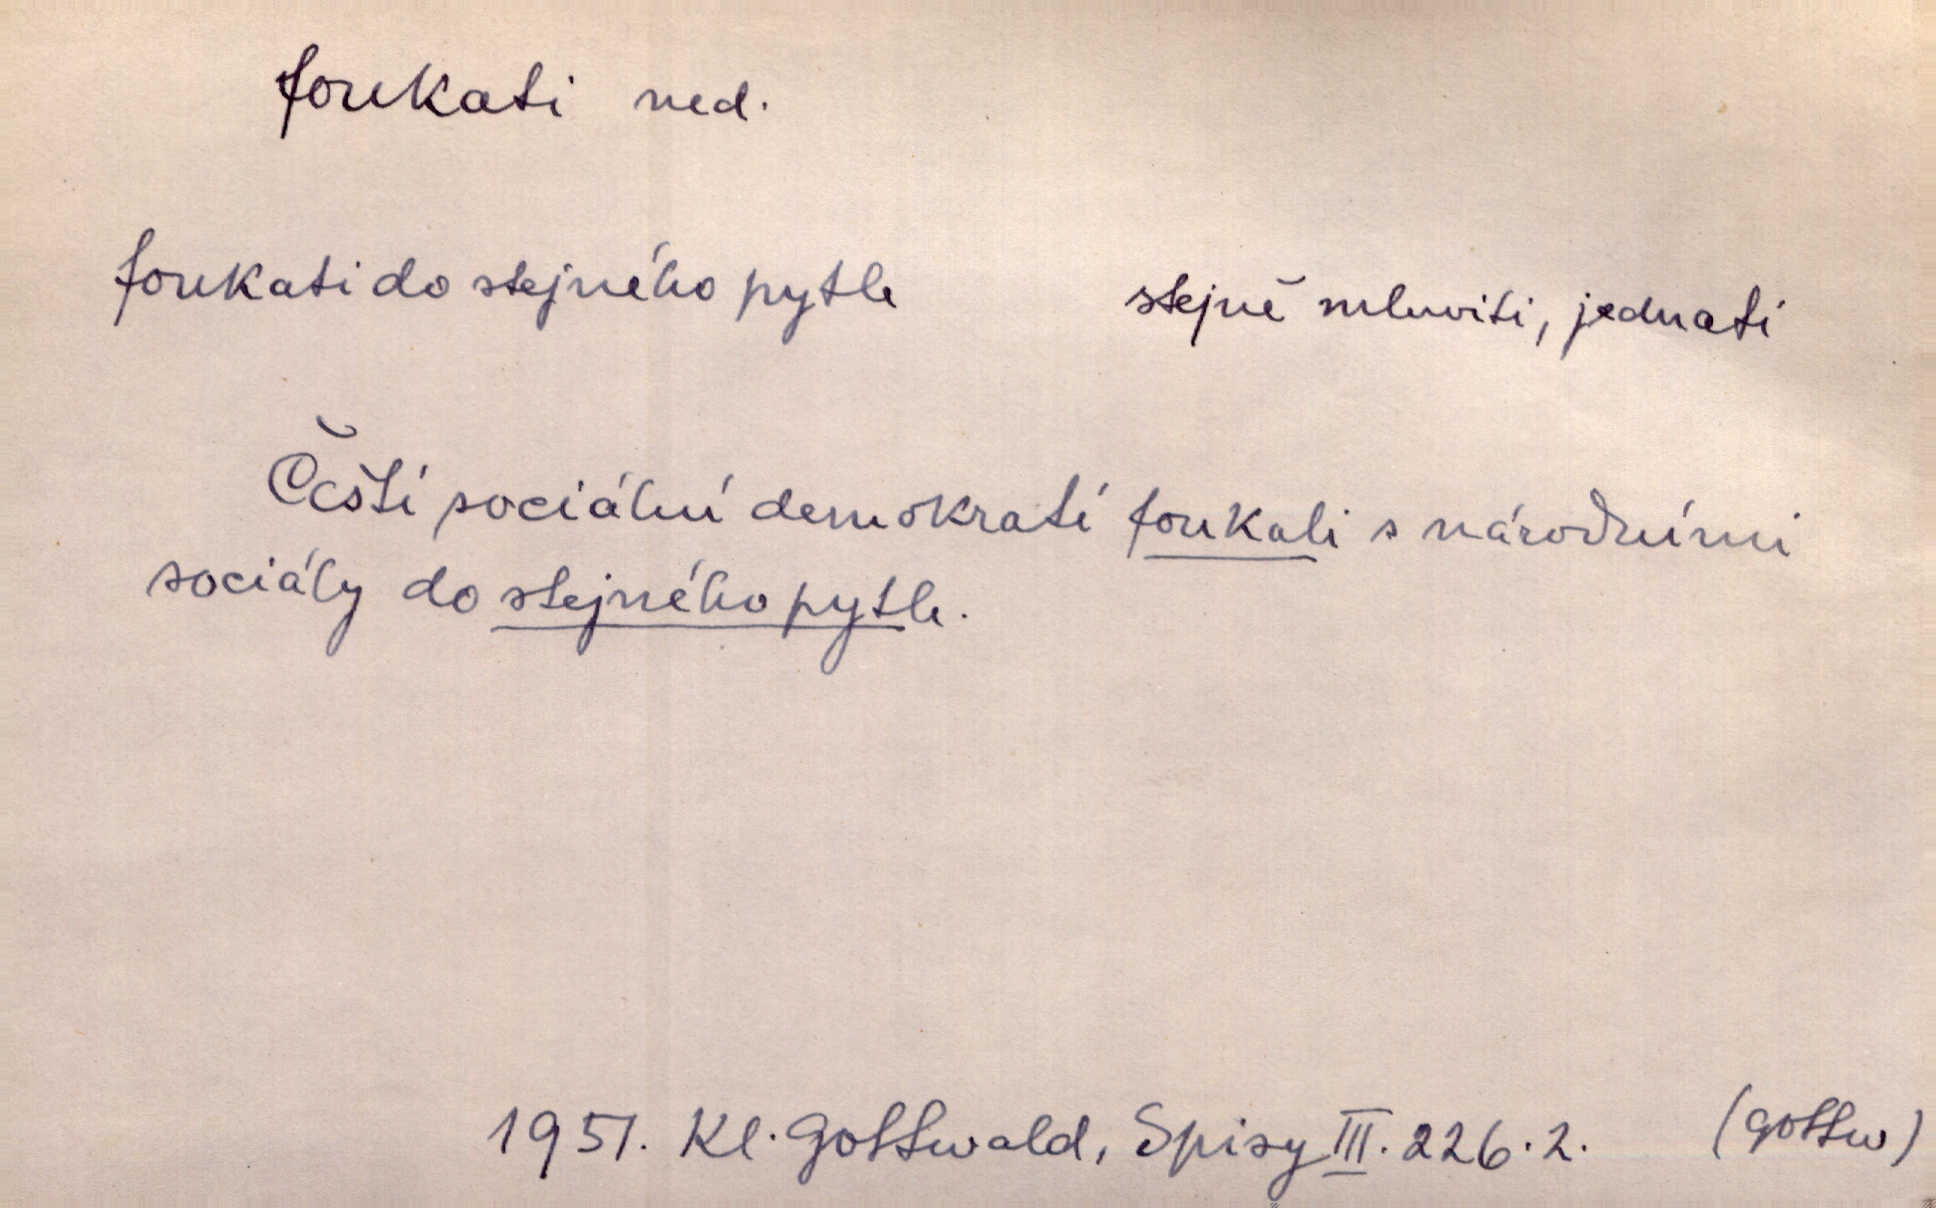 foukati ned.
foukati do stejného pytle stejně mluviti, jednati
Čeští sociální demokrati foukali s národními
sociály do stejného pytle.
1951. Kl. Gottwald, Spisy III. 226.2. (Gottw)